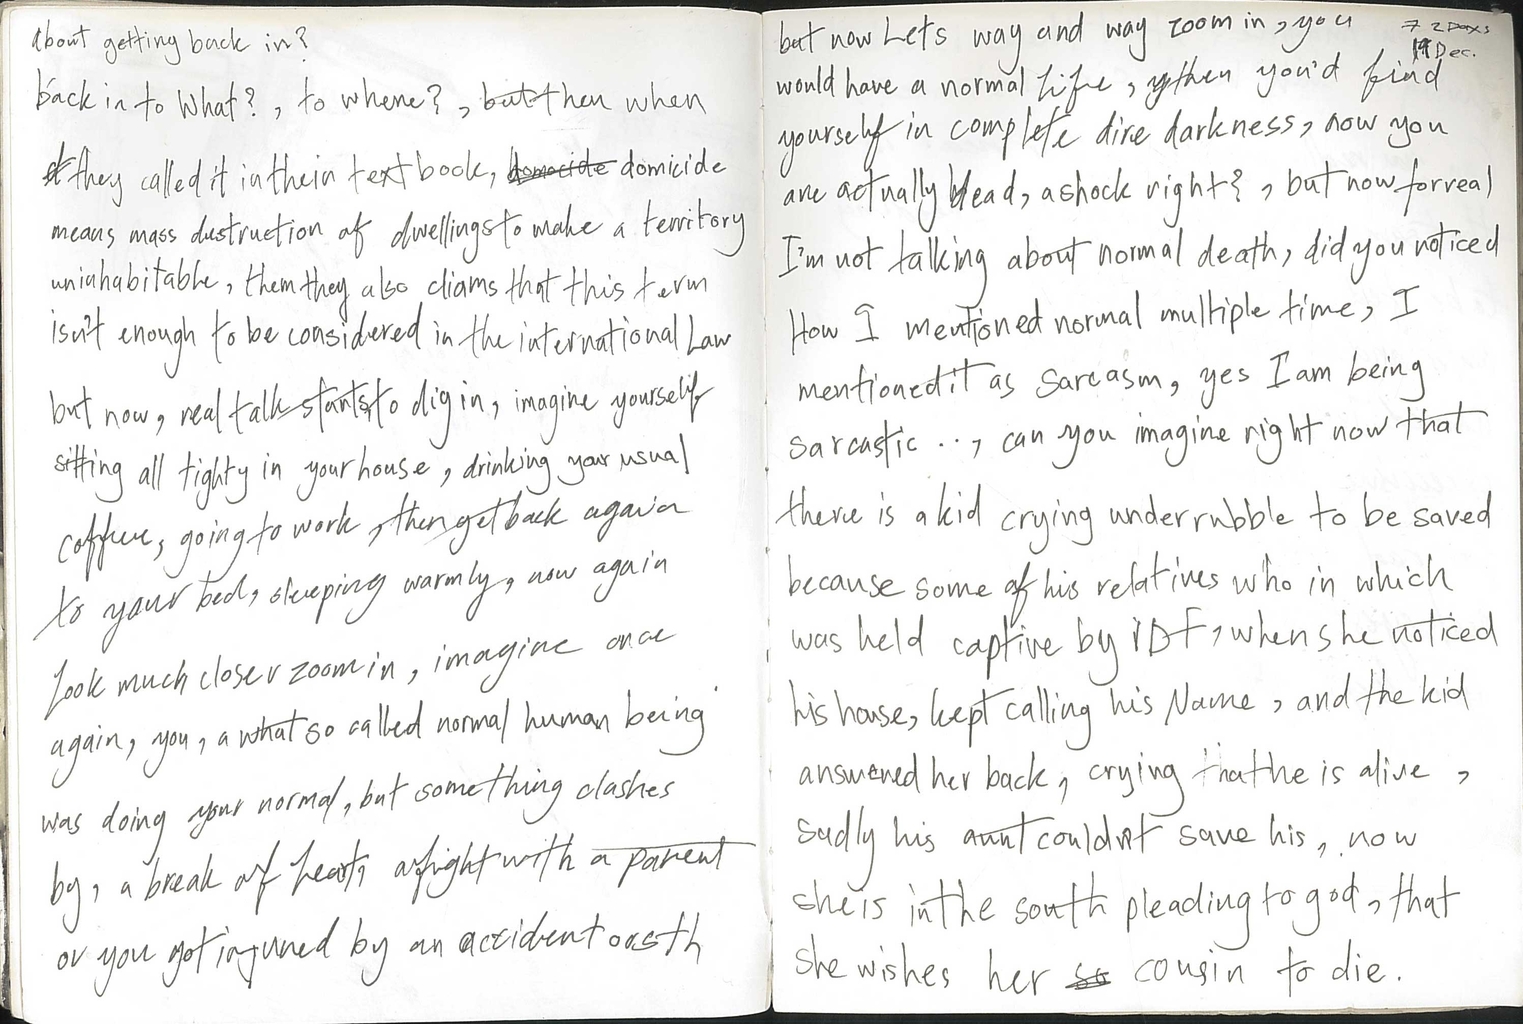 about getting back in?
back in to What?, to where?, but then when
they called it in their text book, domocide domicide
means mass dustruction of dwellings to make a territory
uninhabitable, them they also cliams that this term
isn't enough to be considered in the international Law
but now, real talk starts to dig in, imagine yourself
sitting all tighty in your house, drinking your usual
coffee, going to work, then get back again
to your bed, sleeping warmly, now again
Look much closer zoom in, imagine once
again, you, a what so called normal human being
was doing your normal, but something clashes
by, a break of heart, a fight with a parent
or you got injured by an accident or sth
7 2 Days
19 Dec.
but now Lets way and way zoom in, you
would have a normal life, then you'd find
yourself in complete dire darkness, now you
are actually dead, a shock right?, but now for real
I'm not talking about normal death, did you noticed
How I mentioned normal multiple time, I
mentioned it as Sarcasm, yes I am being
sarcastic .., can you imagine right now that
there is a kid crying under rubble to be saved
because some of his relatives who in which
was held captive by IDF, when she noticed
his house, kept calling his Name, and the kid
answered her back, crying that he is alive,
sadly his aunt couldn't save his, now
she is in the south pleading to god, that
she wishes her so cousin to die.